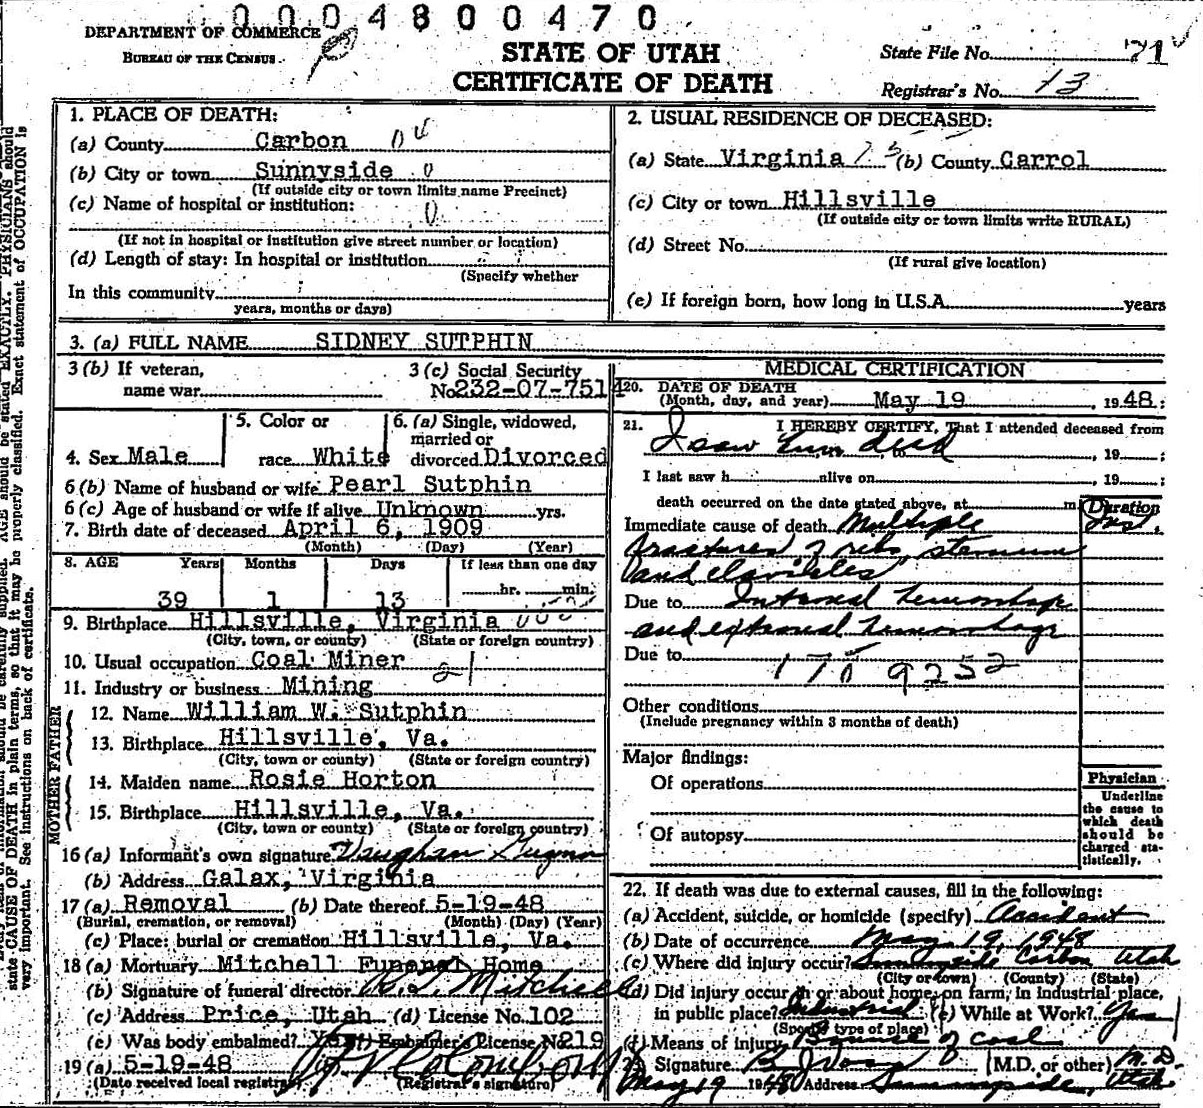 0004800470
DEPARTMENT OF COMMERCE
BUREAU OF THE CENSUS
STATE OF UTAH
CERTIFICATE OF DEATH
State File No. 71
Registrar's No. 13
1. PLACE OF DEATH:
(a) County Carbon 04
(b) City or town Sunnyside 0
(If outside city or town limits name Precinct)
(c) Name of hospital or institution: 0
(If not in hospital or institution give street number or location)
(d) Length of stay: In hospital or institution
(Specify whether
In this community
years, months or days)
2. USUAL RESIDENCE OF DECEASED:
(a) State Virginia (b) County Carrol
(c) City or town Hillsville
(If outside city or town limits write RURAL)
(d) Street No.
(If rural give location)
(e) If foreign born, how long in U.S.A. years
3. (a) FULL NAME SIDNEY SUTPHIN
3 (b) If veteran,
name war
3 (c) Social Security
No. 232-07-7514
4. Sex Male
5. Color or
race White
6. (a) Single, widowed,
married or
divorced Divorced
6 (b) Name of husband or wife Pearl Sutphin
6 (c) Age of husband or wife if alive Unknown yrs.
7. Birth date of deceased April 6, 1909
(Month) (Day) (Year)
8. AGE Years Months Days If less than one day
39 1 13 hr. min.
9. Birthplace Hillsville, Virginia
(City, town, or county) (State or foreign country)
10. Usual occupation Coal Miner 21
11. Industry or business Mining
FATHER
12. Name William W. Sutphin
13. Birthplace Hillsville, Va.
(City, town or county) (State or foreign country)
MOTHER
14. Maiden name Rosie Horton
15. Birthplace Hillsville, Va.
(City, town or county) (State or foreign country)
16 (a) Informant's own signature Vaughan
(b) Address Galax, Virginia
17 (a) Removal (b) Date thereof 5-19-48
(Burial, cremation, or removal) (Month) (Day) (Year)
(c) Place: burial or cremation Hillsville, Va.
18 (a) Mortuary Mitchell Funeral Home
(b) Signature of funeral director Mitchell
(c) Address Price, Utah (d) License No. 102
(e) Was body embalmed? Yes (f) Embalmer's License No. 219
19 (a) 5-19-48
(Date received local registrar) (Registrar's signature)
MEDICAL CERTIFICATION
20. DATE OF DEATH
(Month, day, and year) May 19, 1948
21. I HEREBY CERTIFY, That I attended deceased from
I saw him dead, 19
I last saw h alive on, 19
death occurred on the date stated above, at m. Duration
Immediate cause of death Multiple Inst.
fractures of ribs, sternum
and clavicles
Due to Internal hemorrhage
and external hemorrhage
Due to
Other conditions
(Include pregnancy within 3 months of death)
Major findings:
Of operations
Of autopsy
Physician
Underline
the cause to
which death
should be
charged sta-
tistically.
22. If death was due to external causes, fill in the following:
(a) Accident, suicide, or homicide (specify) Accident
(b) Date of occurrence May 19, 1948
(c) Where did injury occur? Sunnyside Carbon Utah
(City or town) (County) (State)
(d) Did injury occur in or about home, on farm, in industrial place,
in public place? Industrial (e) While at Work? Yes
(Specify type of place)
(f) Means of injury Bounce of coal
23. Signature (M.D. or other) M.D.
May 19 1948 Address Sunnyside, Utah